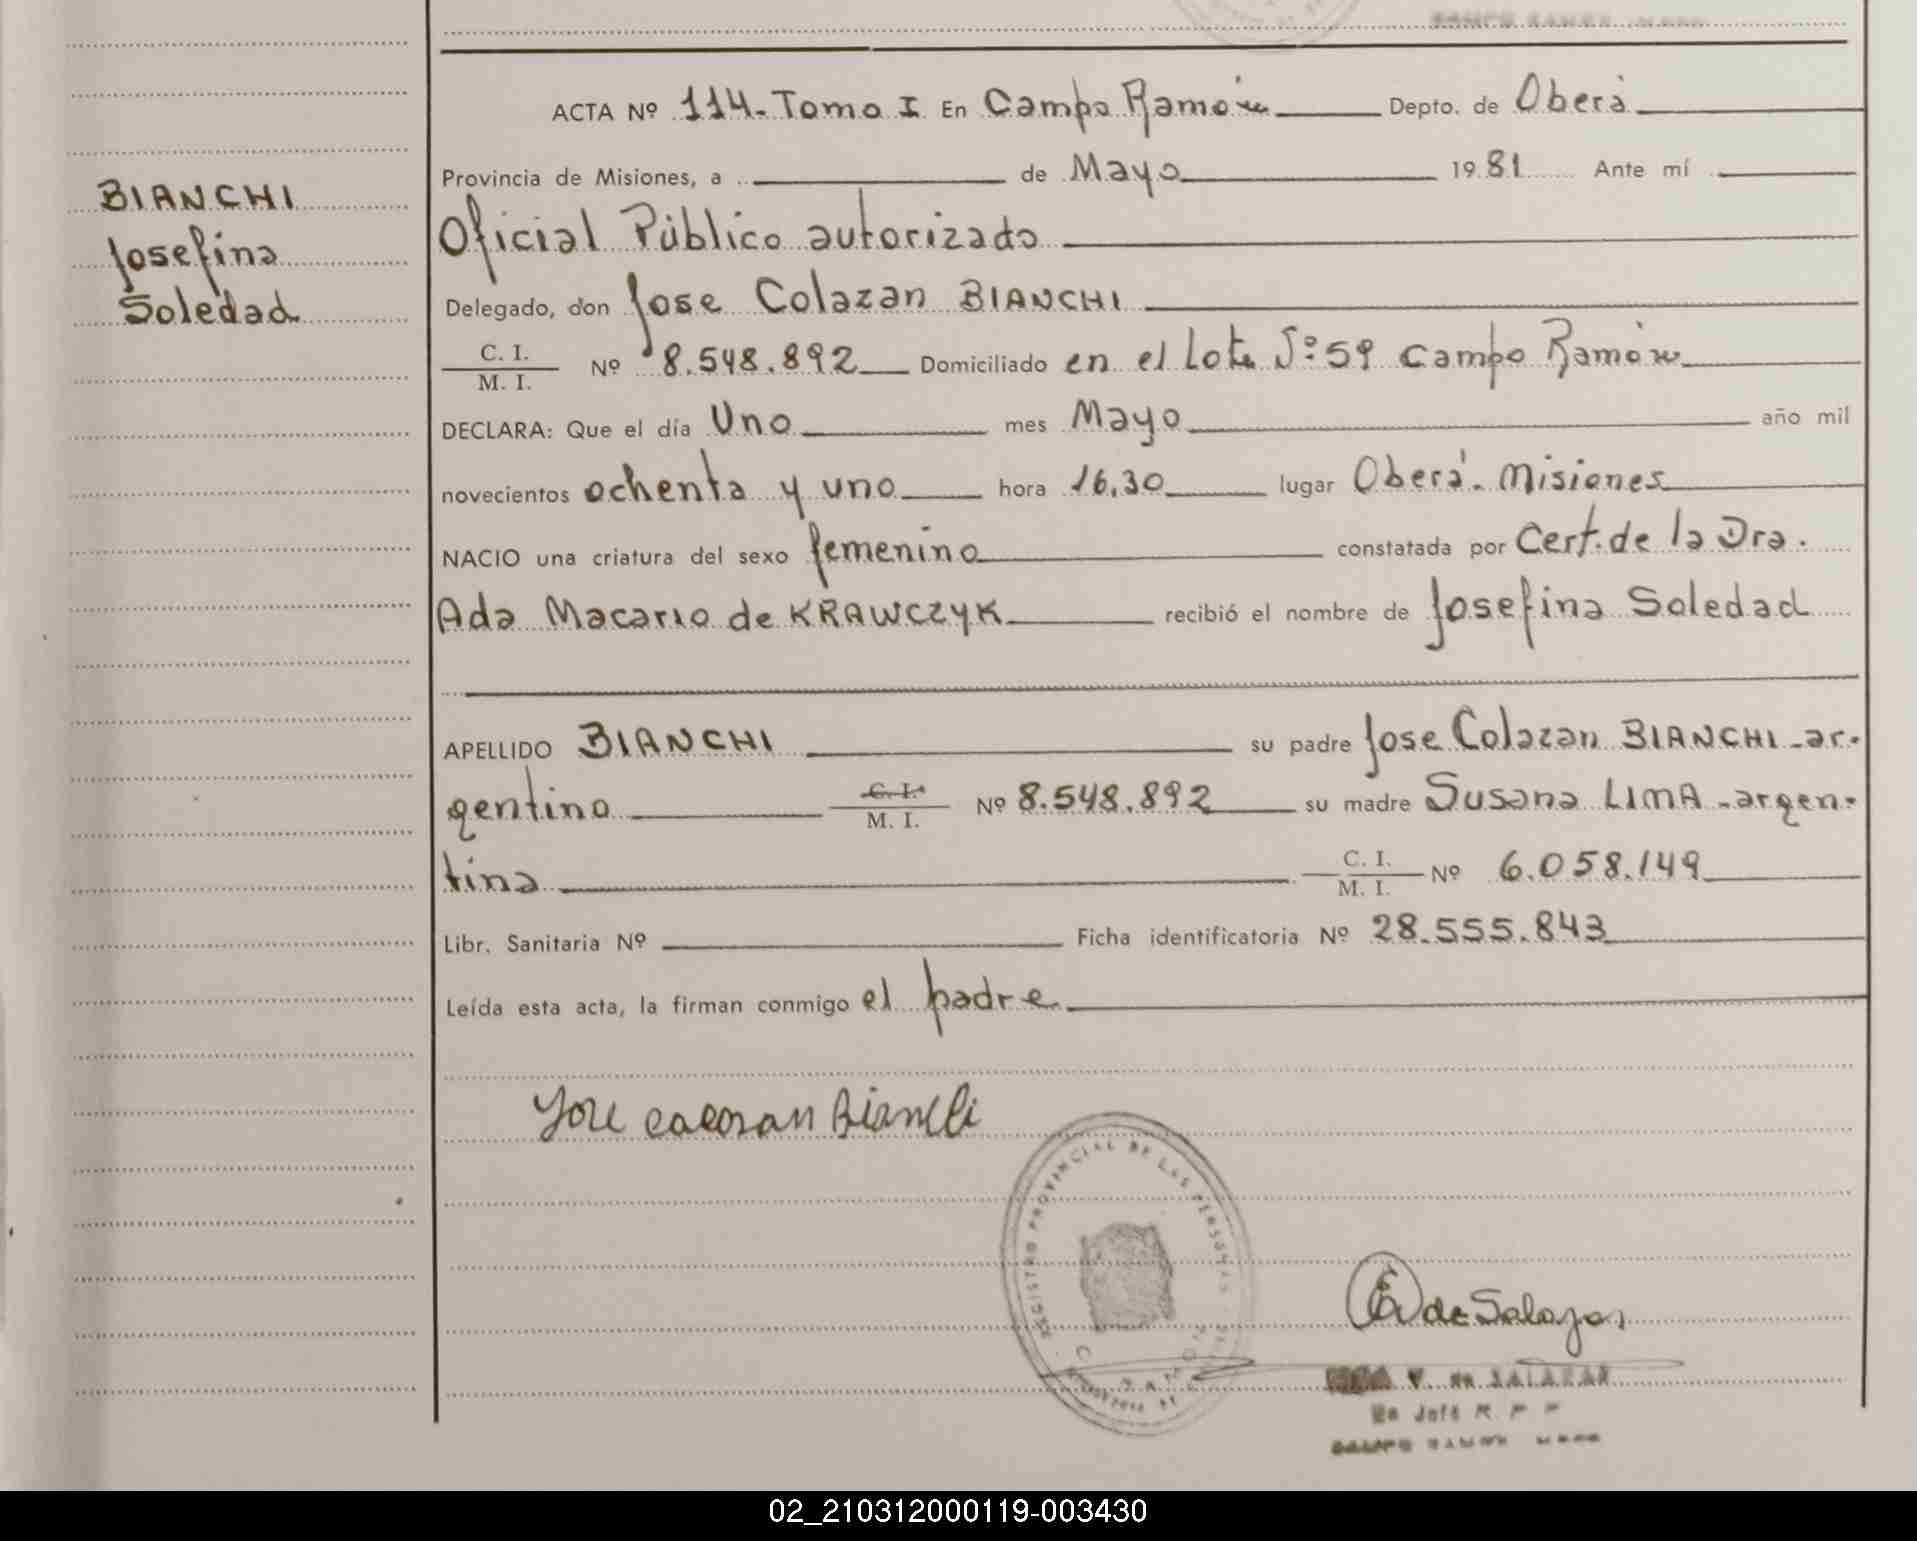 ACTA Nº 114. Tomo I En Campo Ramón Depto. de Oberá
Provincia de Misiones, a de Mayo 1981 Ante mí
BIANCHI
Josefina
Soledad
Oficial Público autorizado
Delegado, don Jose Colazan BIANCHI
C. I.
M. I. Nº 8.548.892 Domiciliado en el Lote Nº 59 Campo Ramón
DECLARA: Que el día Uno mes Mayo año mil
novecientos ochenta y uno hora 16,30 lugar Oberá. Misiones
NACIO una criatura del sexo femenino constatada por Cert. de la Dra.
Ada Macario de KRAWCZYK recibió el nombre de Josefina Soledad
APELLIDO BIANCHI su padre Jose Colazan BIANCHI - ar-
gentino C. I. M. I. Nº 8.548.892 su madre Susana LIMA - argen-
tina C. I. M. I. Nº 6.058.149
Libr. Sanitaria Nº Ficha identificatoria Nº 28.555.843
Leída esta acta, la firman conmigo el padre
Jose Colazan Bianchi
REGISTRO PROVINCIAL DE LAS PERSONAS
de Salazar
V. de SALAZAR
CAMPO RAMON
02_210312000119-003430